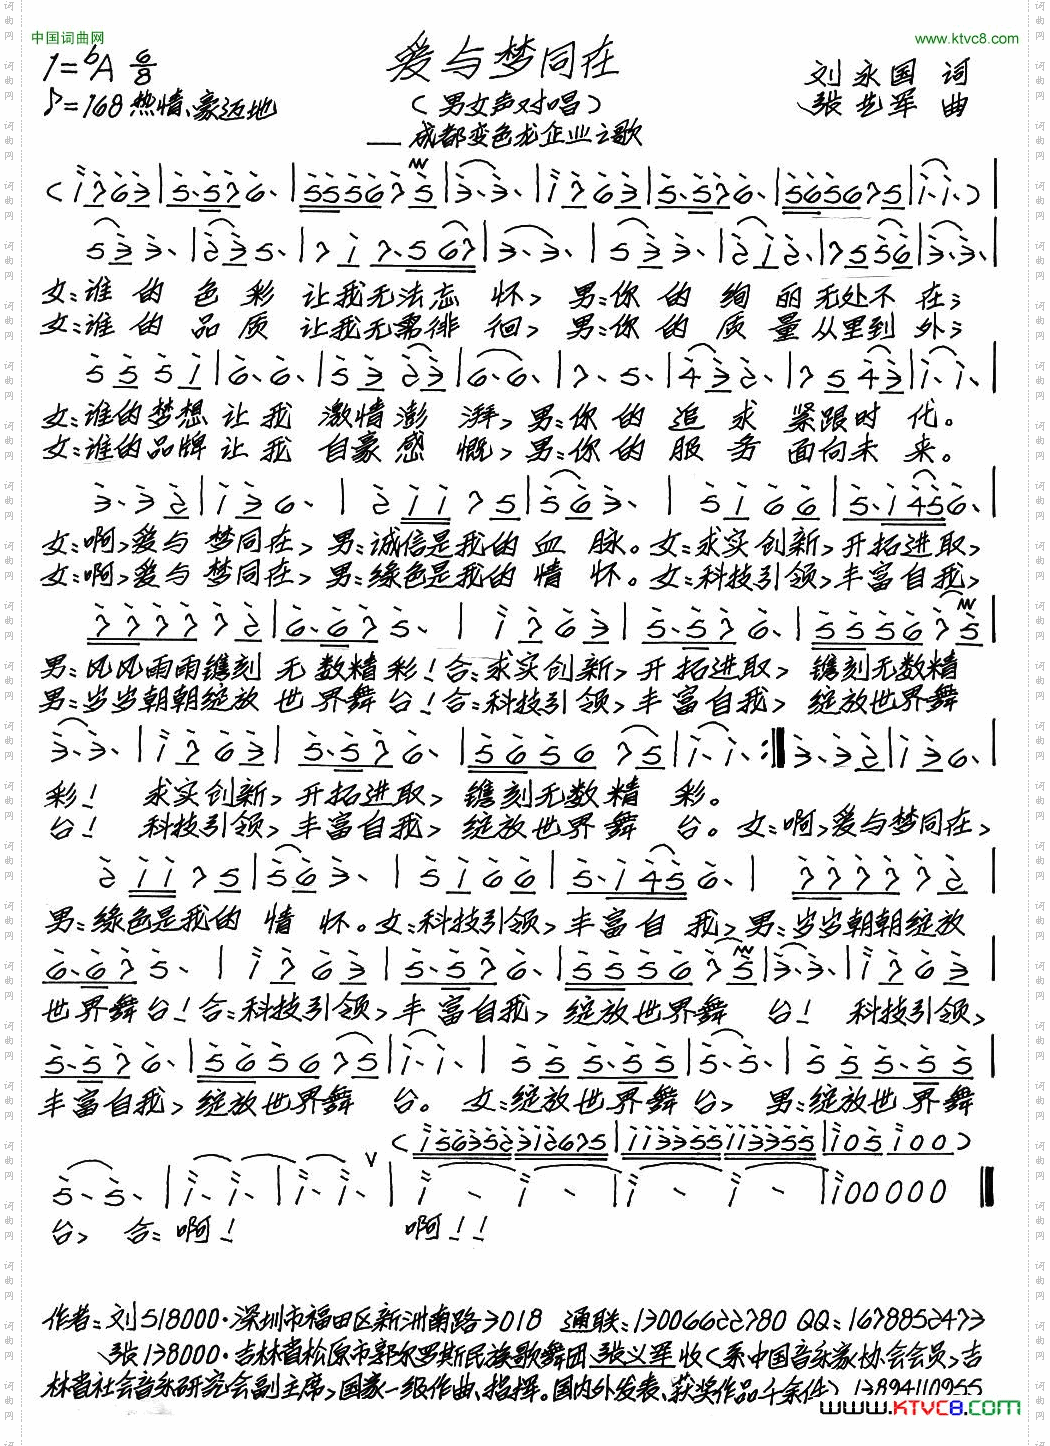 中国词曲网
www.ktvc8.com
1=♭A 6/8
爱与梦同在
刘永国 词
♪=168 热情、豪迈地
(男女声对唱)
张艺军 曲
——成都变色龙企业之歌
女:谁的色彩让我无法忘怀, 男:你的绚丽无处不在;
女:谁的品质让我无需徘徊, 男:你的质量从里到外;
女:谁的梦想让我激情澎湃, 男:你的追求紧跟时代。
女:谁的品牌让我自豪感慨, 男:你的服务面向未来。
女:啊,爱与梦同在, 男:诚信是我的血脉。女:求实创新,开拓进取,
女:啊,爱与梦同在, 男:绿色是我的情怀。女:科技引领,丰富自我,
男:风风雨雨镌刻无数精彩!合:求实创新,开拓进取,镌刻无数精
男:岁岁朝朝绽放世界舞台!合:科技引领,丰富自我,绽放世界舞
彩! 求实创新,开拓进取,镌刻无数精彩。
台! 科技引领,丰富自我,绽放世界舞台。女:啊,爱与梦同在,
男:绿色是我的情怀。女:科技引领,丰富自我,男:岁岁朝朝绽放
世界舞台!合:科技引领,丰富自我,绽放世界舞台! 科技引领,
丰富自我,绽放世界舞台。女:绽放世界舞台, 男:绽放世界舞
台, 合:啊! 啊!!
作者:刘518000·深圳市福田区新洲南路3018 通联:13006622780 QQ:1678852473
张138000·吉林省松原市郭尔罗斯民族歌舞团 张义军收(系中国音乐家协会会员,吉
林省社会音乐研究会副主席,国家一级作曲、指挥。国内外发表、获奖作品千余件) 13894110955
www.KTVC8.com